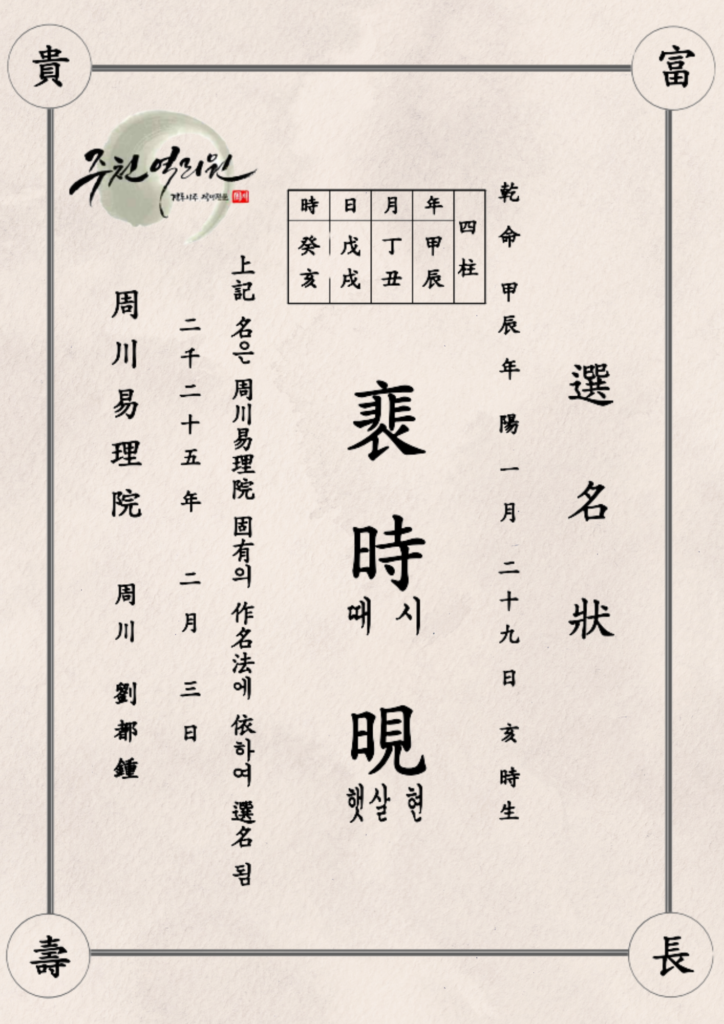 富
貴
選名狀
乾命 甲辰年 陽一月 二十九日 亥時生
四柱
年 甲辰
月 丁丑
日 戊戌
時 癸亥
裵
時
때 시
晛
햇살 현
上記 名은 周川易理院 固有의 作名法에 依하여 選名 됨
二千二十五年 二月 三日
周川易理院 周川 劉都鍾
주천역리원
長
壽